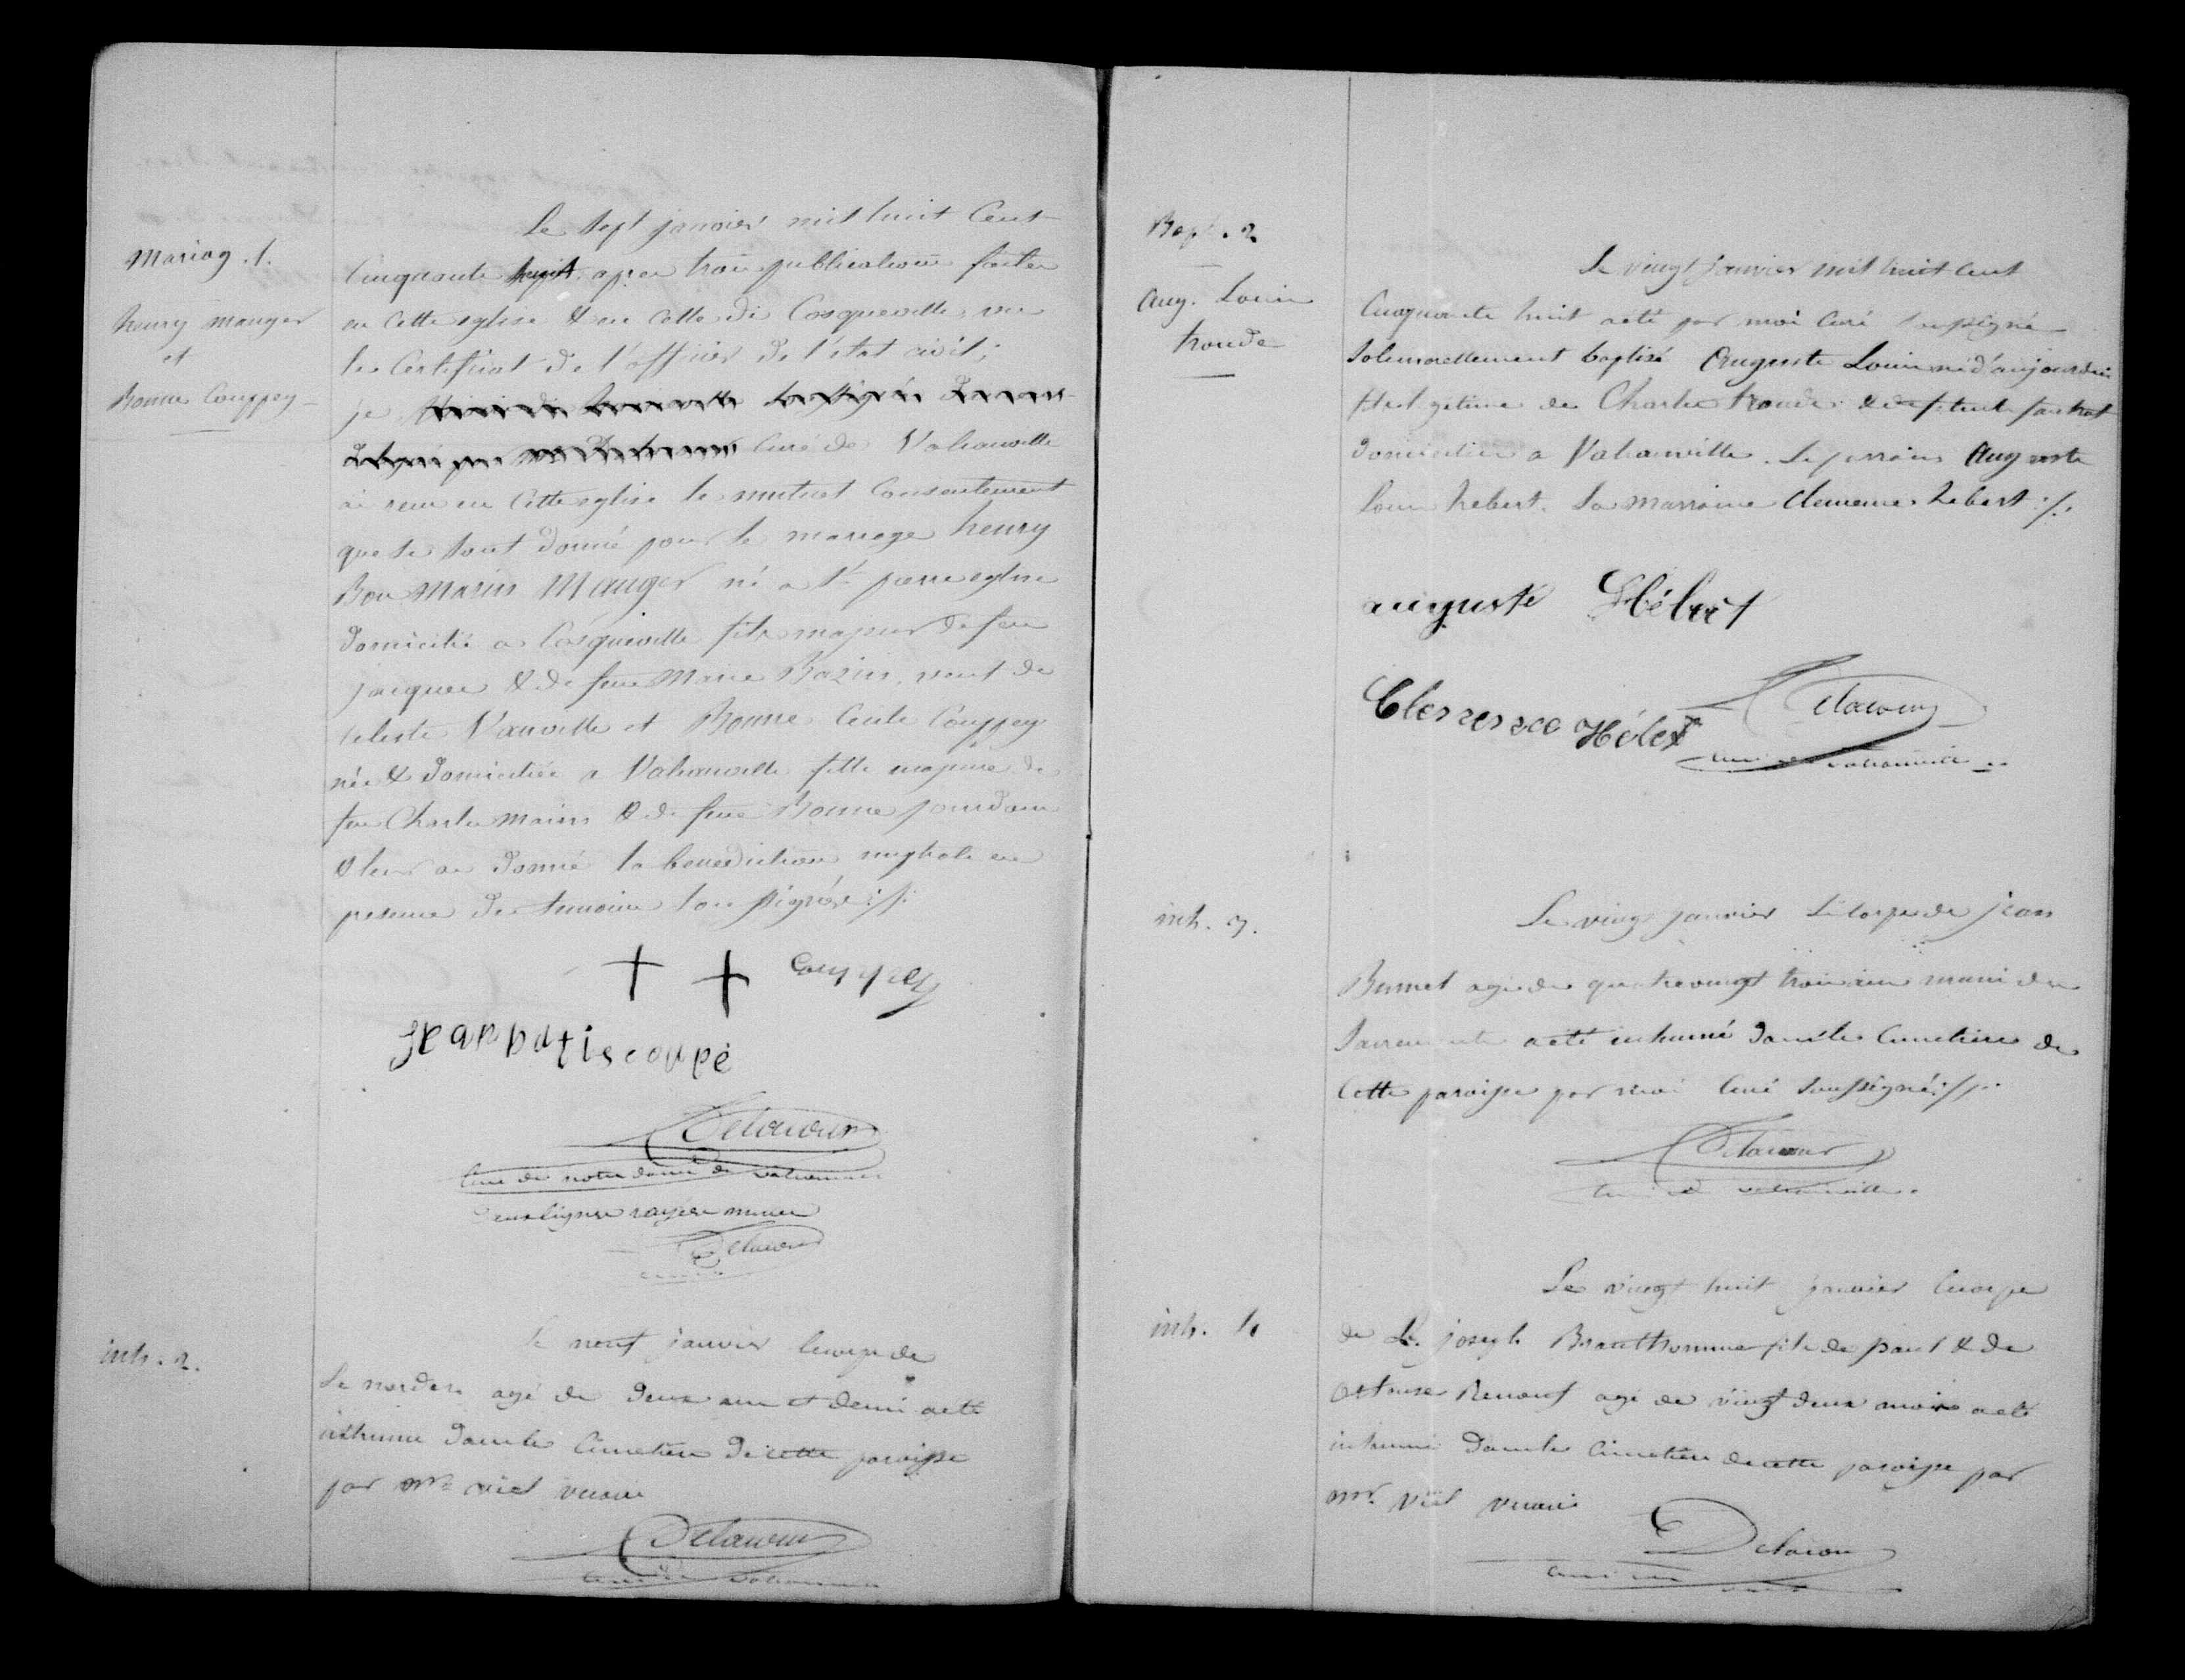 Mariag. 1.
henry mauger
et
Bonne Couppey
Le sept janvier mil huit Cent
Cinquante huit apres trois publications faites
en cette eglise & en celle de Cosqueville, vu
le Certificat de l'officier de l'état civil;
je
Curé de Valcanville
ai reçu en Cette eglise le mutuel Consentement
que se sont donné pour le mariage henry
Bon Marin Mauger né a St pierre eglise
Domicilié a Cosqueville fils majeur de feu
jacques & de feue Marie Bazin, veuf de
celeste Vauville et Bonne Cecile Couppey
née & Domiciliée a Valcanville fille majeure de
feu Charles marin & de feue Bonne jourdam
& leur ai Donné la benediction nuptiale en
presence des temoins soussignés ://:
+ + Couppey
jeanbatiscoupé
Delacour
Curé de notre dame de valcanville
deux lignes rayées nulles
Delacour
inh. 2.
Le neuf janvier le corps de
agé de Deux ans et demi a eté
inhumé Dans le Cimetiere de cette paroisse
par Mr viel vicaire
Delacour
curé de valcanville
Bapt. 2
Aug. Louis
troude
Le vingt janvier mil huit cent
Cinquante huit a eté par moi Curé soussigné
solennellement baptisé Auguste Louis né d'aujourdui
fils legitime de Charles troude & de
Domiciliés a Valcanville. Le parrain Auguste
Louis hebert. La marraine Clemence hebert :/.
auguste Hébert
Clemence Hébert
Delacour
curé de valcanville
inh. 3.
Le vingt janvier Le corps de jean
Burnel agé de quatrevingt trois ans muni des
Sacrements a eté inhumé Dans le Cimetiere de
Cette paroisse par moi Curé Soussigné ://.
Delacour
curé de valcanville
inh. 4
Le vingt huit janvier le corps
de L. joseph Brantthomme fils de paul & de
Renouf agé de vingt deux mois a eté
inhumé Dans le Cimetiere de cette paroisse par
mr. Viel vicaire
Delacour